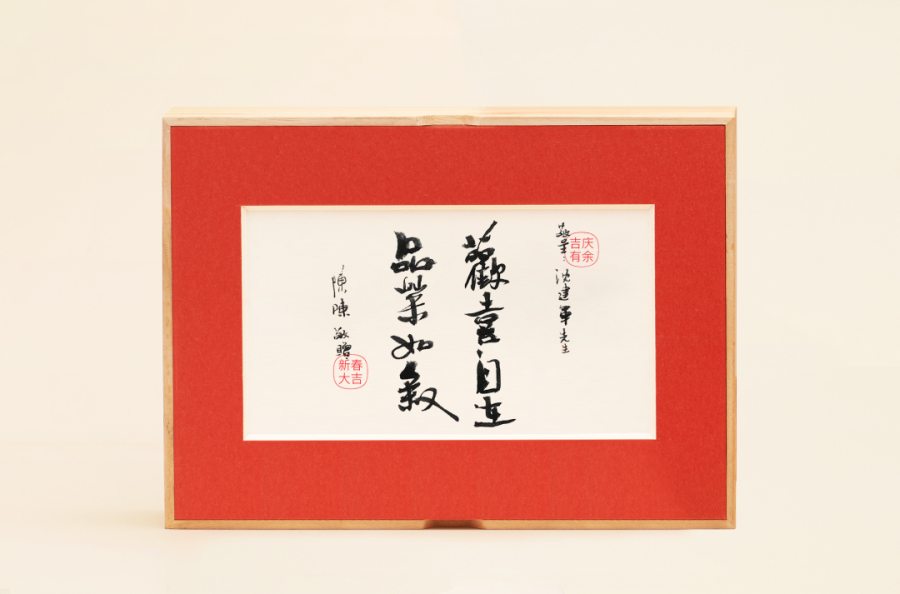 沈建軍先生
吉庆
有余
歡喜自在
品茶如叙
陳陳 敬贈
新春
大吉